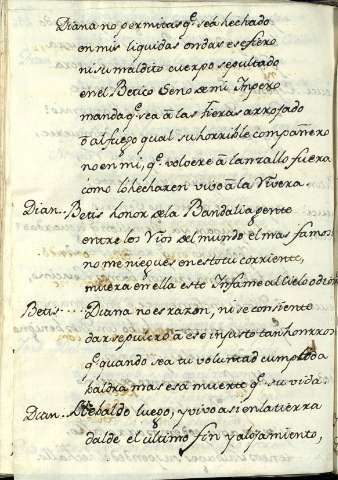 Diana no permitas q̃. sea hechado
en mis liquidas ondas ese fiero
ni su maldito cuerpo sepultado
en el Betico Seno de mi Impero
manda q̃. sea â las fieras arrojado
ô al fuego qual su horrible compañero
no en mi, q̃. volvere â lanzallo fuera
como lo hecharen vivo â la Rivera.
Dian. Betis honor de la Bandalia gente
entre los Rios del mundo el mas famoso
no me niegues en esto tu corriente,
muera en ella este Infame al Cielo odioso
Betis... Diana no es razon, ni se consiente
dar sepulcro a ese insulto tan honrroso
q̃. quando sea tu voluntad cumplida
valdra mas esa muerte q̃. su vida;
Dian. luego, y vivo asi en la tierra
dalde el ultimo fin y alojamiento,